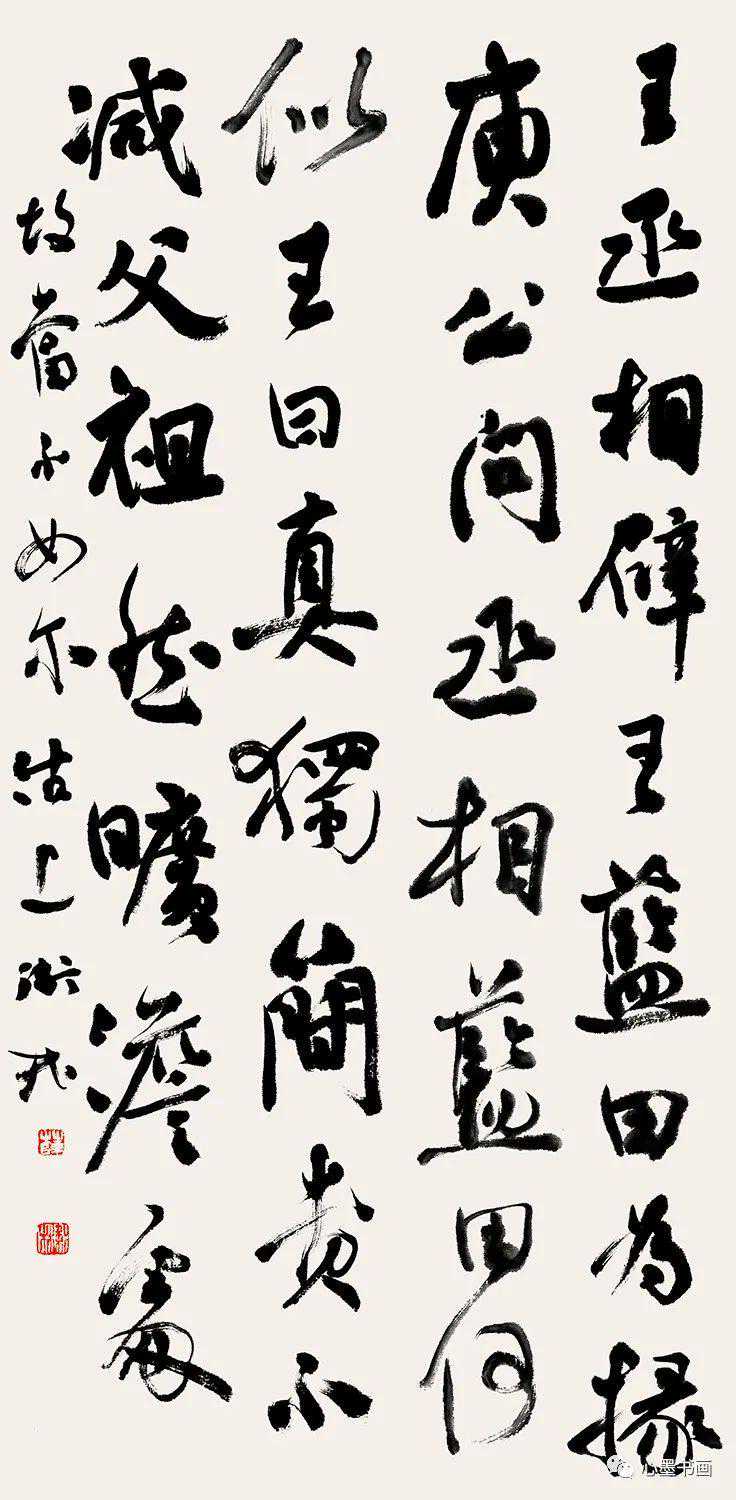 王丞相辟王藍田為掾
庾公问丞相藍田何
似王曰真獨簡貴不
减父祖然曠澹處
故當不如尔沽上
心墨书画